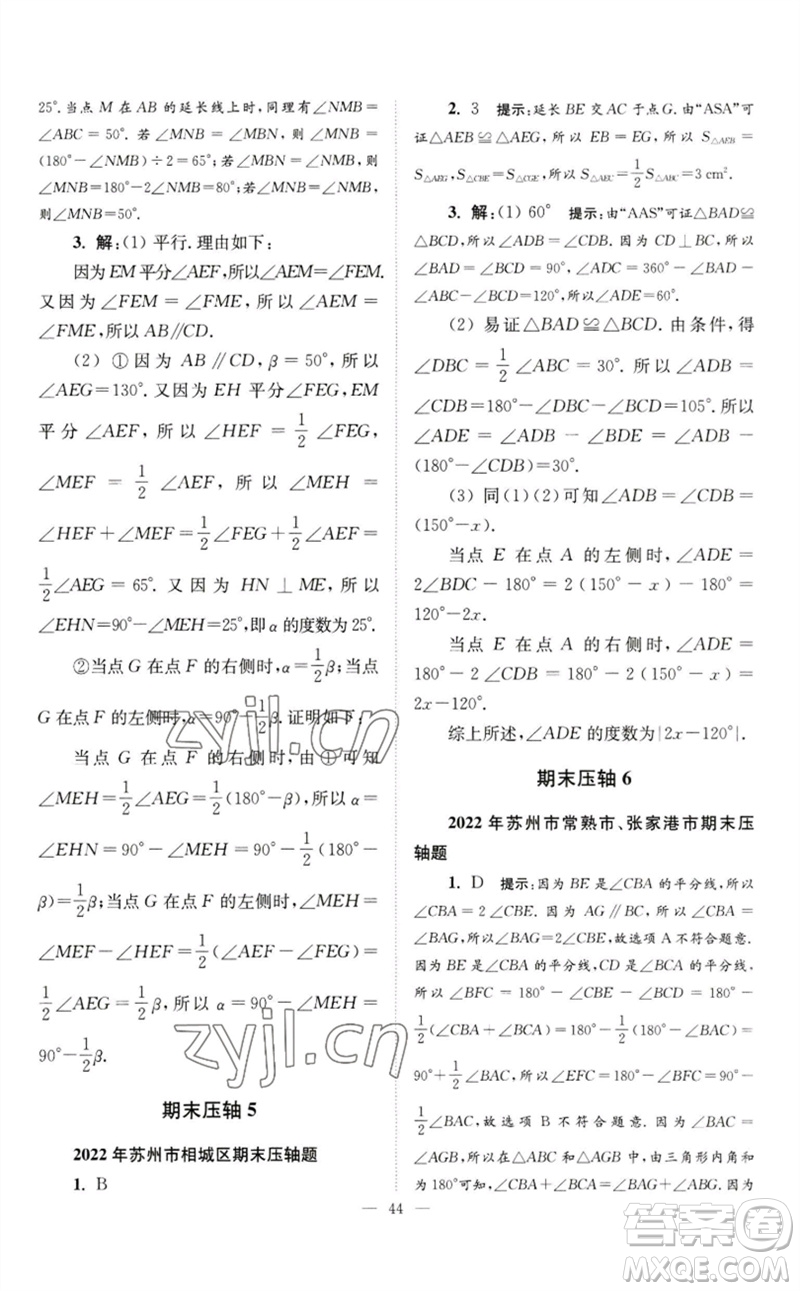 25°. 当点 M 在 AB 的延长线上时,同理有∠NMB=
∠ABC = 50°. 若∠MNB = ∠MBN, 则∠MNB =
(180°-∠NMB)÷2=65°; 若∠MBN=∠NMB, 则
∠MNB=180°-2∠NMB=80°; 若∠MNB=∠NMB,则
∠MNB=50°.
3. 解:(1) 平行. 理由如下:
因为 EM 平分∠AEF,所以∠AEM=∠FEM.
又因为∠FEM = ∠FME, 所以∠AEM =
∠FME,所以 AB∥CD.
(2) ①因为 AB∥CD, β = 50°, 所以
∠AEG=130°. 又因为 EH 平分∠FEG, EM
平分∠AEF, 所以∠HEF = 1/2 ∠FEG,
∠MEF = 1/2 ∠AEF, 所以∠MEH =
∠HEF+∠MEF = 1/2∠FEG+1/2∠AEF =
1/2∠AEG = 65°. 又因为 HN ⊥ ME, 所以
∠EHN=90°-∠MEH=25°,即α的度数为 25°.
②当点 G 在点 F 的右侧时,α=1/2β; 当点
G 在点 F 的左侧时,α=90°-1/2β. 证明如下:
当点 G 在点 F 的右侧时,由①可知
∠MEH=1/2∠AEG=1/2(180°-β),所以 α=
∠EHN = 90° - ∠MEH = 90° - 1/2(180° -
β)=1/2β; 当点 G 在点 F 的左侧时,∠MEH=
∠MEF-∠HEF=1/2(∠AEF-∠FEG)=
1/2∠AEG = 所以 α = 90° - ∠MEH =
90°-1/2β.
期末压轴 5
2022 年苏州市相城区期末压轴题
1. B
2. 3 提示:延长 BE 交 AC 于点 G. 由“ASA”可
证△AEB≌△AEG,所以 EB=EG,所以 S△AEB=
S△AEG,S△CBE=S△CGE,所以 S△AEC=1/2S△ABC=3 cm².
3. 解:(1) 60° 提示:由“AAS”可证△BAD≌
△BCD,所以∠ADB=∠CDB. 因为 CD⊥BC,所以
∠BAD=∠BCD=90°,∠ADC=360°-∠BAD-
∠ABC-∠BCD=120°,所以∠ADE=60°.
(2) 易证△BAD≌△BCD. 由条件,得
∠DBC = 1/2 ∠ABC = 30°. 所以∠ADB =
∠CDB=180°-∠DBC-∠BCD=105°. 所以
∠ADE = ∠ADB - ∠BDE = ∠ADB -
(180°-∠CDB)=30°.
(3) 同(1)(2)可知∠ADB=∠CDB=
(150°-x).
当点 E 在点 A 的左侧时,∠ADE =
2∠BDC - 180° = 2(150° - x) - 180° =
120°-2x.
当点 E 在点 A 的右侧时,∠ADE =
180° - 2 ∠CDB = 180° - 2(150° - x) =
2x-120°.
综上所述,∠ADE 的度数为|2x-120°|.
期末压轴 6
2022 年苏州市常熟市、张家港市期末压
轴题
1. D 提示:因为 BE 是∠CBA 的平分线,所以
∠CBA=2∠CBE. 因为 AG∥BC,所以∠CBA=
∠BAG,所以∠BAG=2∠CBE,故选项 A 不符合题意.
因为 BE 是∠CBA 的平分线,CD 是∠BCA 的平分线,
所以∠BFC = 180° - ∠CBE - ∠BCD = 180° -
1/2(∠CBA+∠BCA)=180°-1/2(180°-∠BAC)=
90°+1/2∠BAC,所以∠EFC=180°-∠BFC=90°-
1/2∠BAC, 故选项 B 不符合题意. 因为∠BAC =
∠AGB,所以在△ABE 和△AGB 中,由三角形内角和
为180°可知,∠AEB=∠ABG=∠ABC+∠CBG. 因为
— 44 —
zyjl.cn
zyjl.cn
答案卷
MXQE.COM